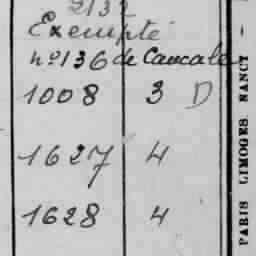 2132
Exempté
nº 136 de Cancale
1008 3 D
1627 4
1628 4
PARIS LIMOGES NANCY